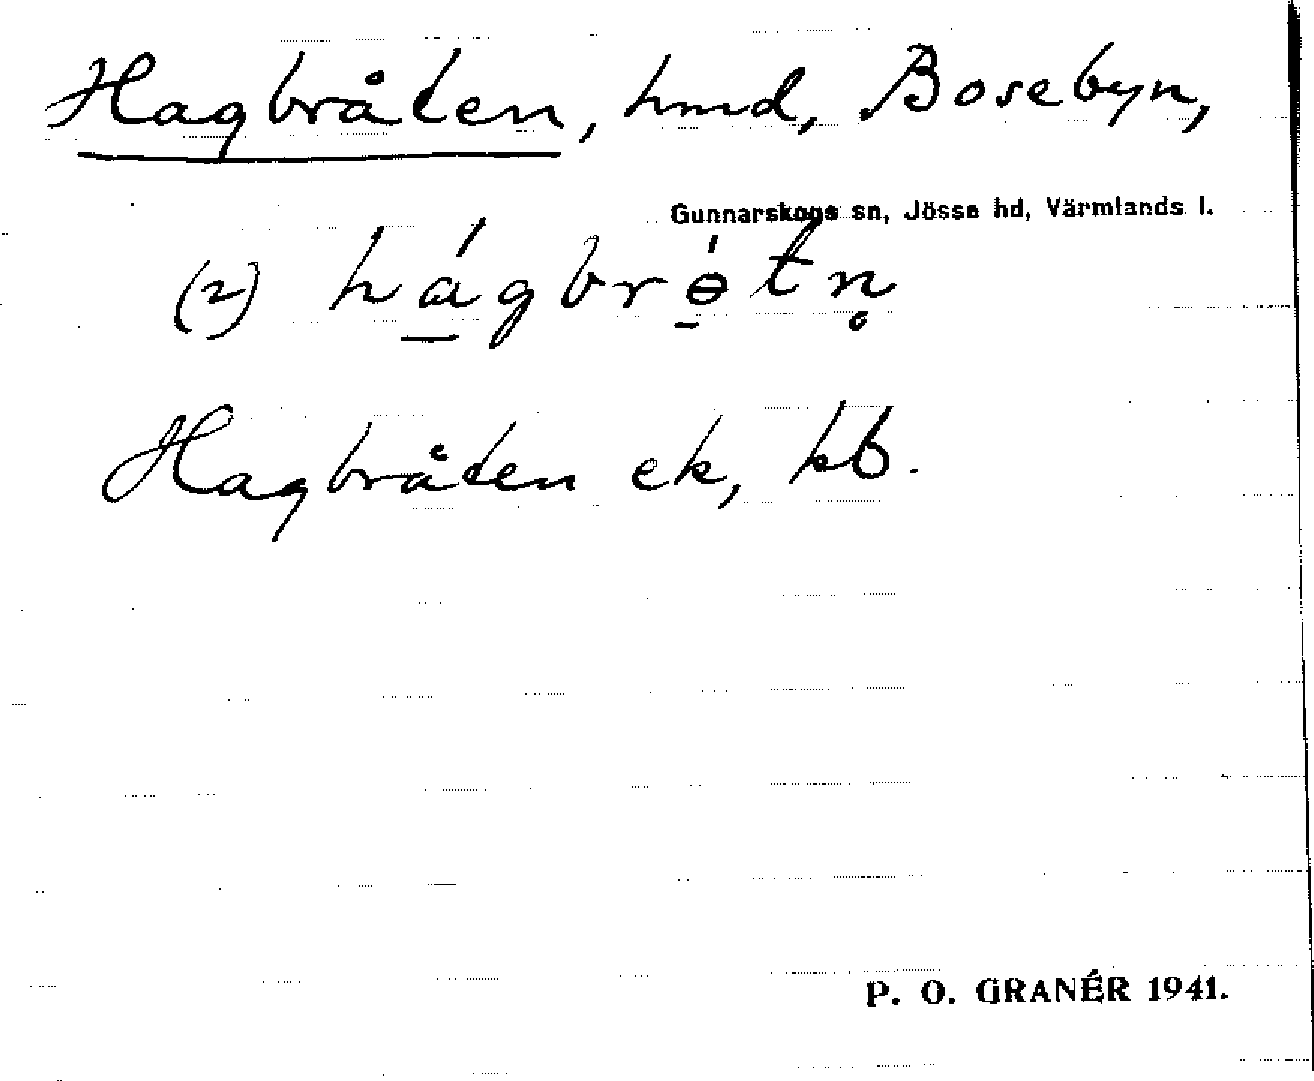 Hagbråten, hmd, Bosebyn,
Gunnarskogs sn, Jösse hd, Värmlands l.
(2) há̱gbrɵ̱́tn̥
Hagbråten ek, kb.
P. O. GRANÉR 1941.